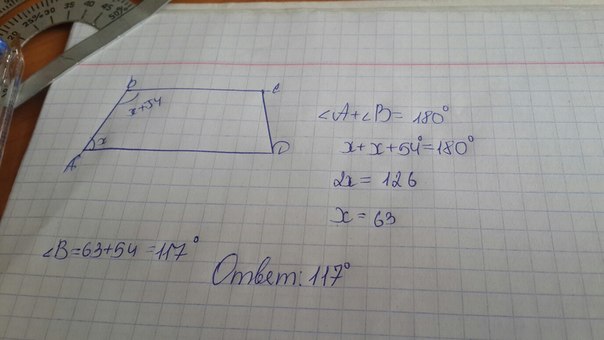 B
C
x+54
x
A
D
∠A+∠B= 180°
x+x+54°=180°
2x= 126
x= 63
∠B=63+54 =117°
Ответ: 117°